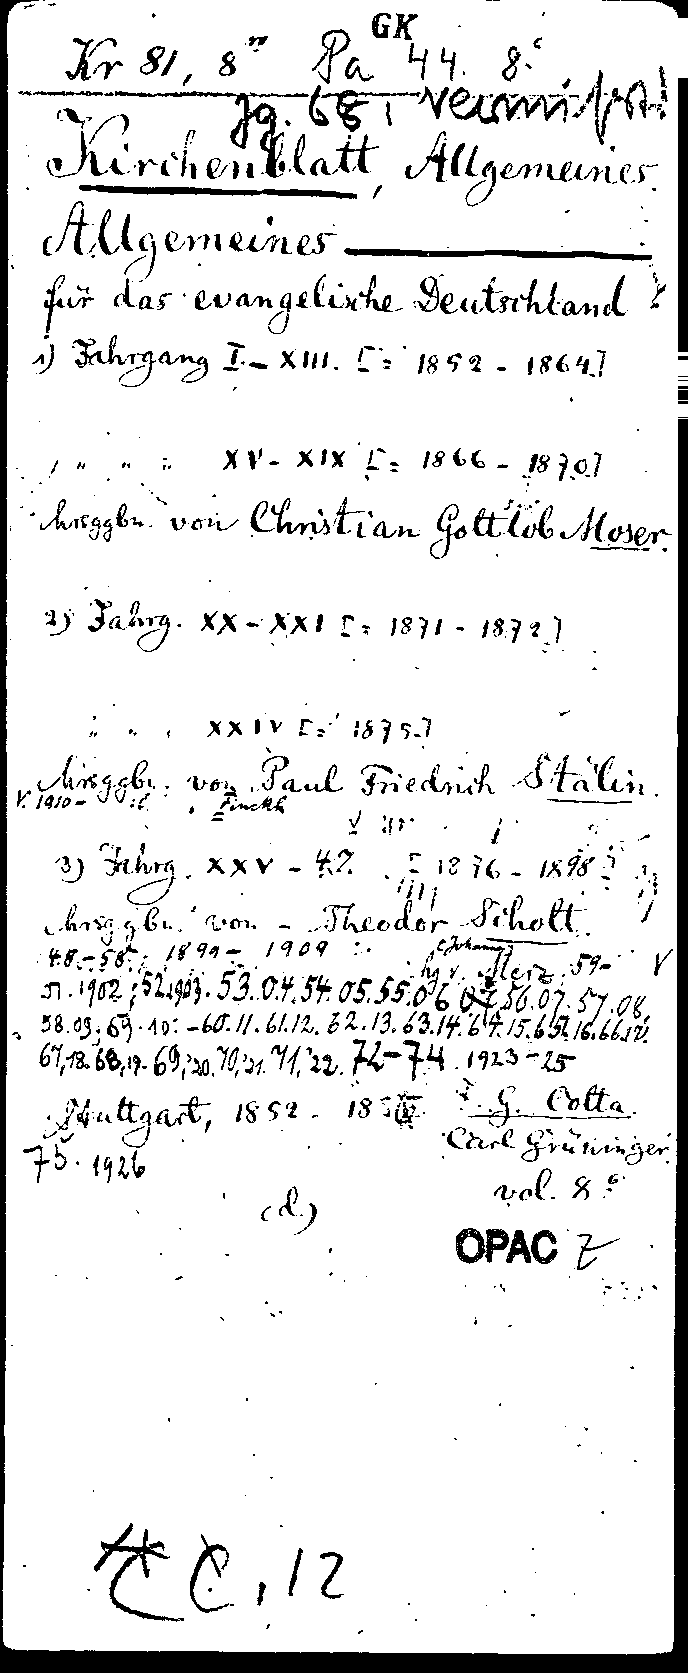 GK
Kr 81, 8" Pa 44. 8.°
Jg. 68, vermißt!
Kirchenblatt, Allgemeines.
Allgemeines
für das evangelische Deutschland
1) Jahrgang I. - XIII. [= 1852 - 1864]
" " " XV - XIX [= 1866 - 1870]
hrsggbn. von Christian Gottlob Moser.
2) Jahrg. XX - XXI [= 1871 - 1872]
" " " XXIV [= 1875.]
hrsggbn. von Paul Friedrich Stälin.
v. 1910- Finckh
3) Jahrg. XXV - 47. [= 1876 - 1898]
hrsggbn. von - Theodor Schott.
48.-58. 1899 - 1909 (Johannes)
hg. v. Merz, 59-
51. 1902; 52.1903. 53.04.54.05.55.06 56.07.57.08.
58.09.59.10.-60.11.61.12.62.13.63.14.64.15.65.16.66.17.
67,18.68,19.69,'20.70,'21.71,'22. 72-74. 1923-25
Stuttgart, 1852 - G. Cotta.
75. 1926 Carl Grüninger.
vol. 8°
(d.)
OPAC Z
CC, 12